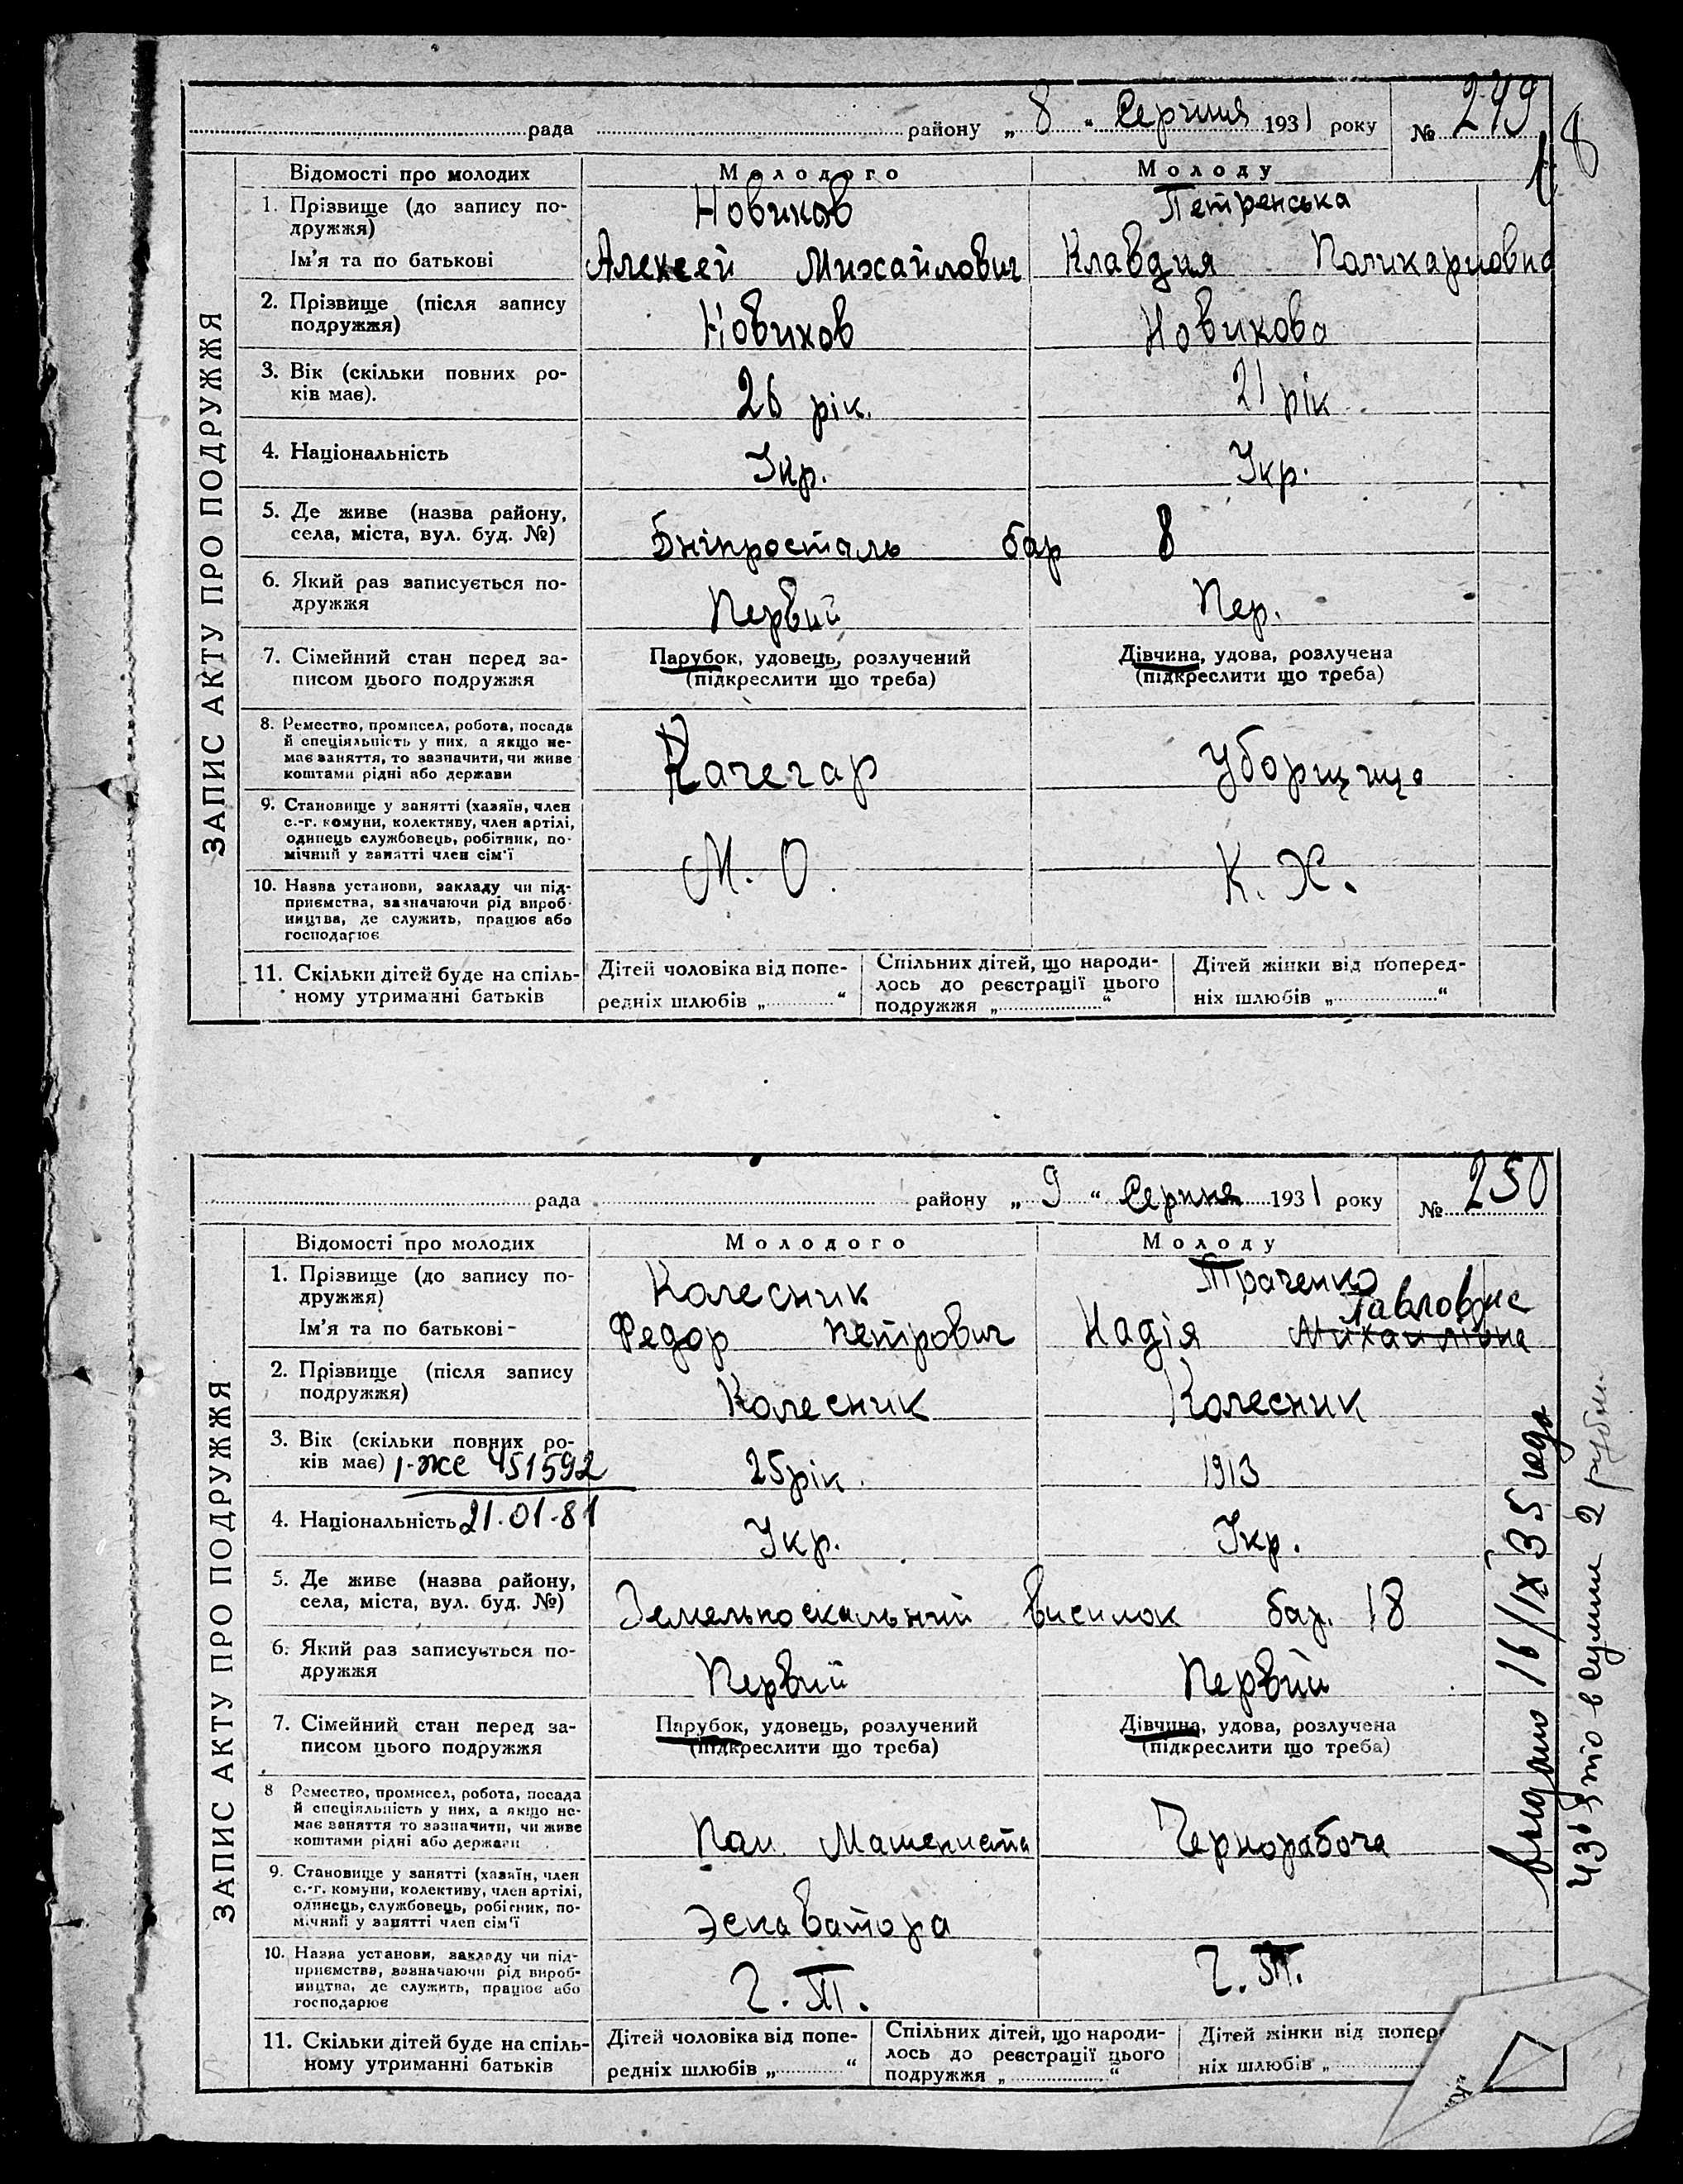 рада району „ 8 “ Серпня 1931 року № 249
18
ЗАПИС АКТУ ПРО ПОДРУЖЖЯ
Відомості про молодих Молодого Молоду
1. Прізвище (до запису по- Новиков Петренська
дружжя)
Ім'я та по батькові Алексей Михайлович Клавдия Поликарповна
2. Прізвище (після запису Новиков Новикова
подружжя)
3. Вік (скільки повних ро- 26 рік. 21 рік
ків має).
4. Національність Укр. Укр.
5. Де живе (назва району,
села, міста, вул. буд. №) Дніпросталь бар 8
6. Який раз записується по- Первий Пер.
дружжя
7. Сімейний стан перед за- Парубок, удовець, розлучений Дівчина, удова, розлучена
писом цього подружжя (підкреслити що треба) (підкреслити що треба)
8. Ремество, промисел, робота, посада
й спеціяльність у них, а якщо не-
має заняття, то зазначити, чи живе Качегар Уборщица
коштами рідні або держави
9. Становище у занятті (хазяїн, член
с.-г. комуни, колективу, член артілі,
одинець службовець, робітник, по-
мічний у занятті член сім'ї М. О. К. Х.
10. Назва установи, закладу чи під-
приємства, зазначаючи рід вироб-
ництва, де служить, працює або
господарює
11. Скільки дітей буде на спіль- Дітей чоловіка від попе- Спільних дітей, що народи- Дітей жінки від поперед-
ному утриманні батьків редніх шлюбів „ “ лось до реєстрації цього ніх шлюбів „ “
подружжя „ “
рада району „ 9 “ Серпня 1931 року № 250
ЗАПИС АКТУ ПРО ПОДРУЖЖЯ
Відомості про молодих Молодого Молоду
1. Прізвище (до запису по- Колесник Траченко
дружжя) Павловна
Ім'я та по батькові- Федор Петрович Надія Михайлівна
2. Прізвище (після запису Колесник Колесник
подружжя)
3. Вік (скільки повних ро- 25 рік. 1913
ків має) І-ЖС 451592
4. Національність 21.01.81 Укр. Укр.
5. Де живе (назва району,
села, міста, вул. буд. №) висилок бар. 18
6. Який раз записується по- Первий Первий
дружжя
7. Сімейний стан перед за- Парубок, удовець, розлучений Дівчина, удова, розлучена
писом цього подружжя (підкреслити що треба) (підкреслити що треба)
8 Ремество, промисел, робота, посада
й спеціяльність у них, а якщо не-
має заняття то зазначити, чи живе Пом. Машениста Чернорабоча
коштами рідні або держави
9. Становище у занятті (хазяїн, член
с.-г. комуни, колективу, член артілі,
одинець, службовець, робітник, по- Эскаватора
мічний у занятті член сім'ї
10. Назва установи, закладу чи під-
приємства, зазначаючи рід вироб- Г. Т. Г. Т.
ництва, де служить, працює або
господарює
11. Скільки дітей буде на спіль- Дітей чоловіка від попе- Спільних дітей, що народи- Дітей жінки від попер
ному утриманні батьків редніх шлюбів „ “ лось до реєстрації цього ніх шлюбів „
подружжя „ “
выдано 16/IX 35 года
в сумме 2 рубл.